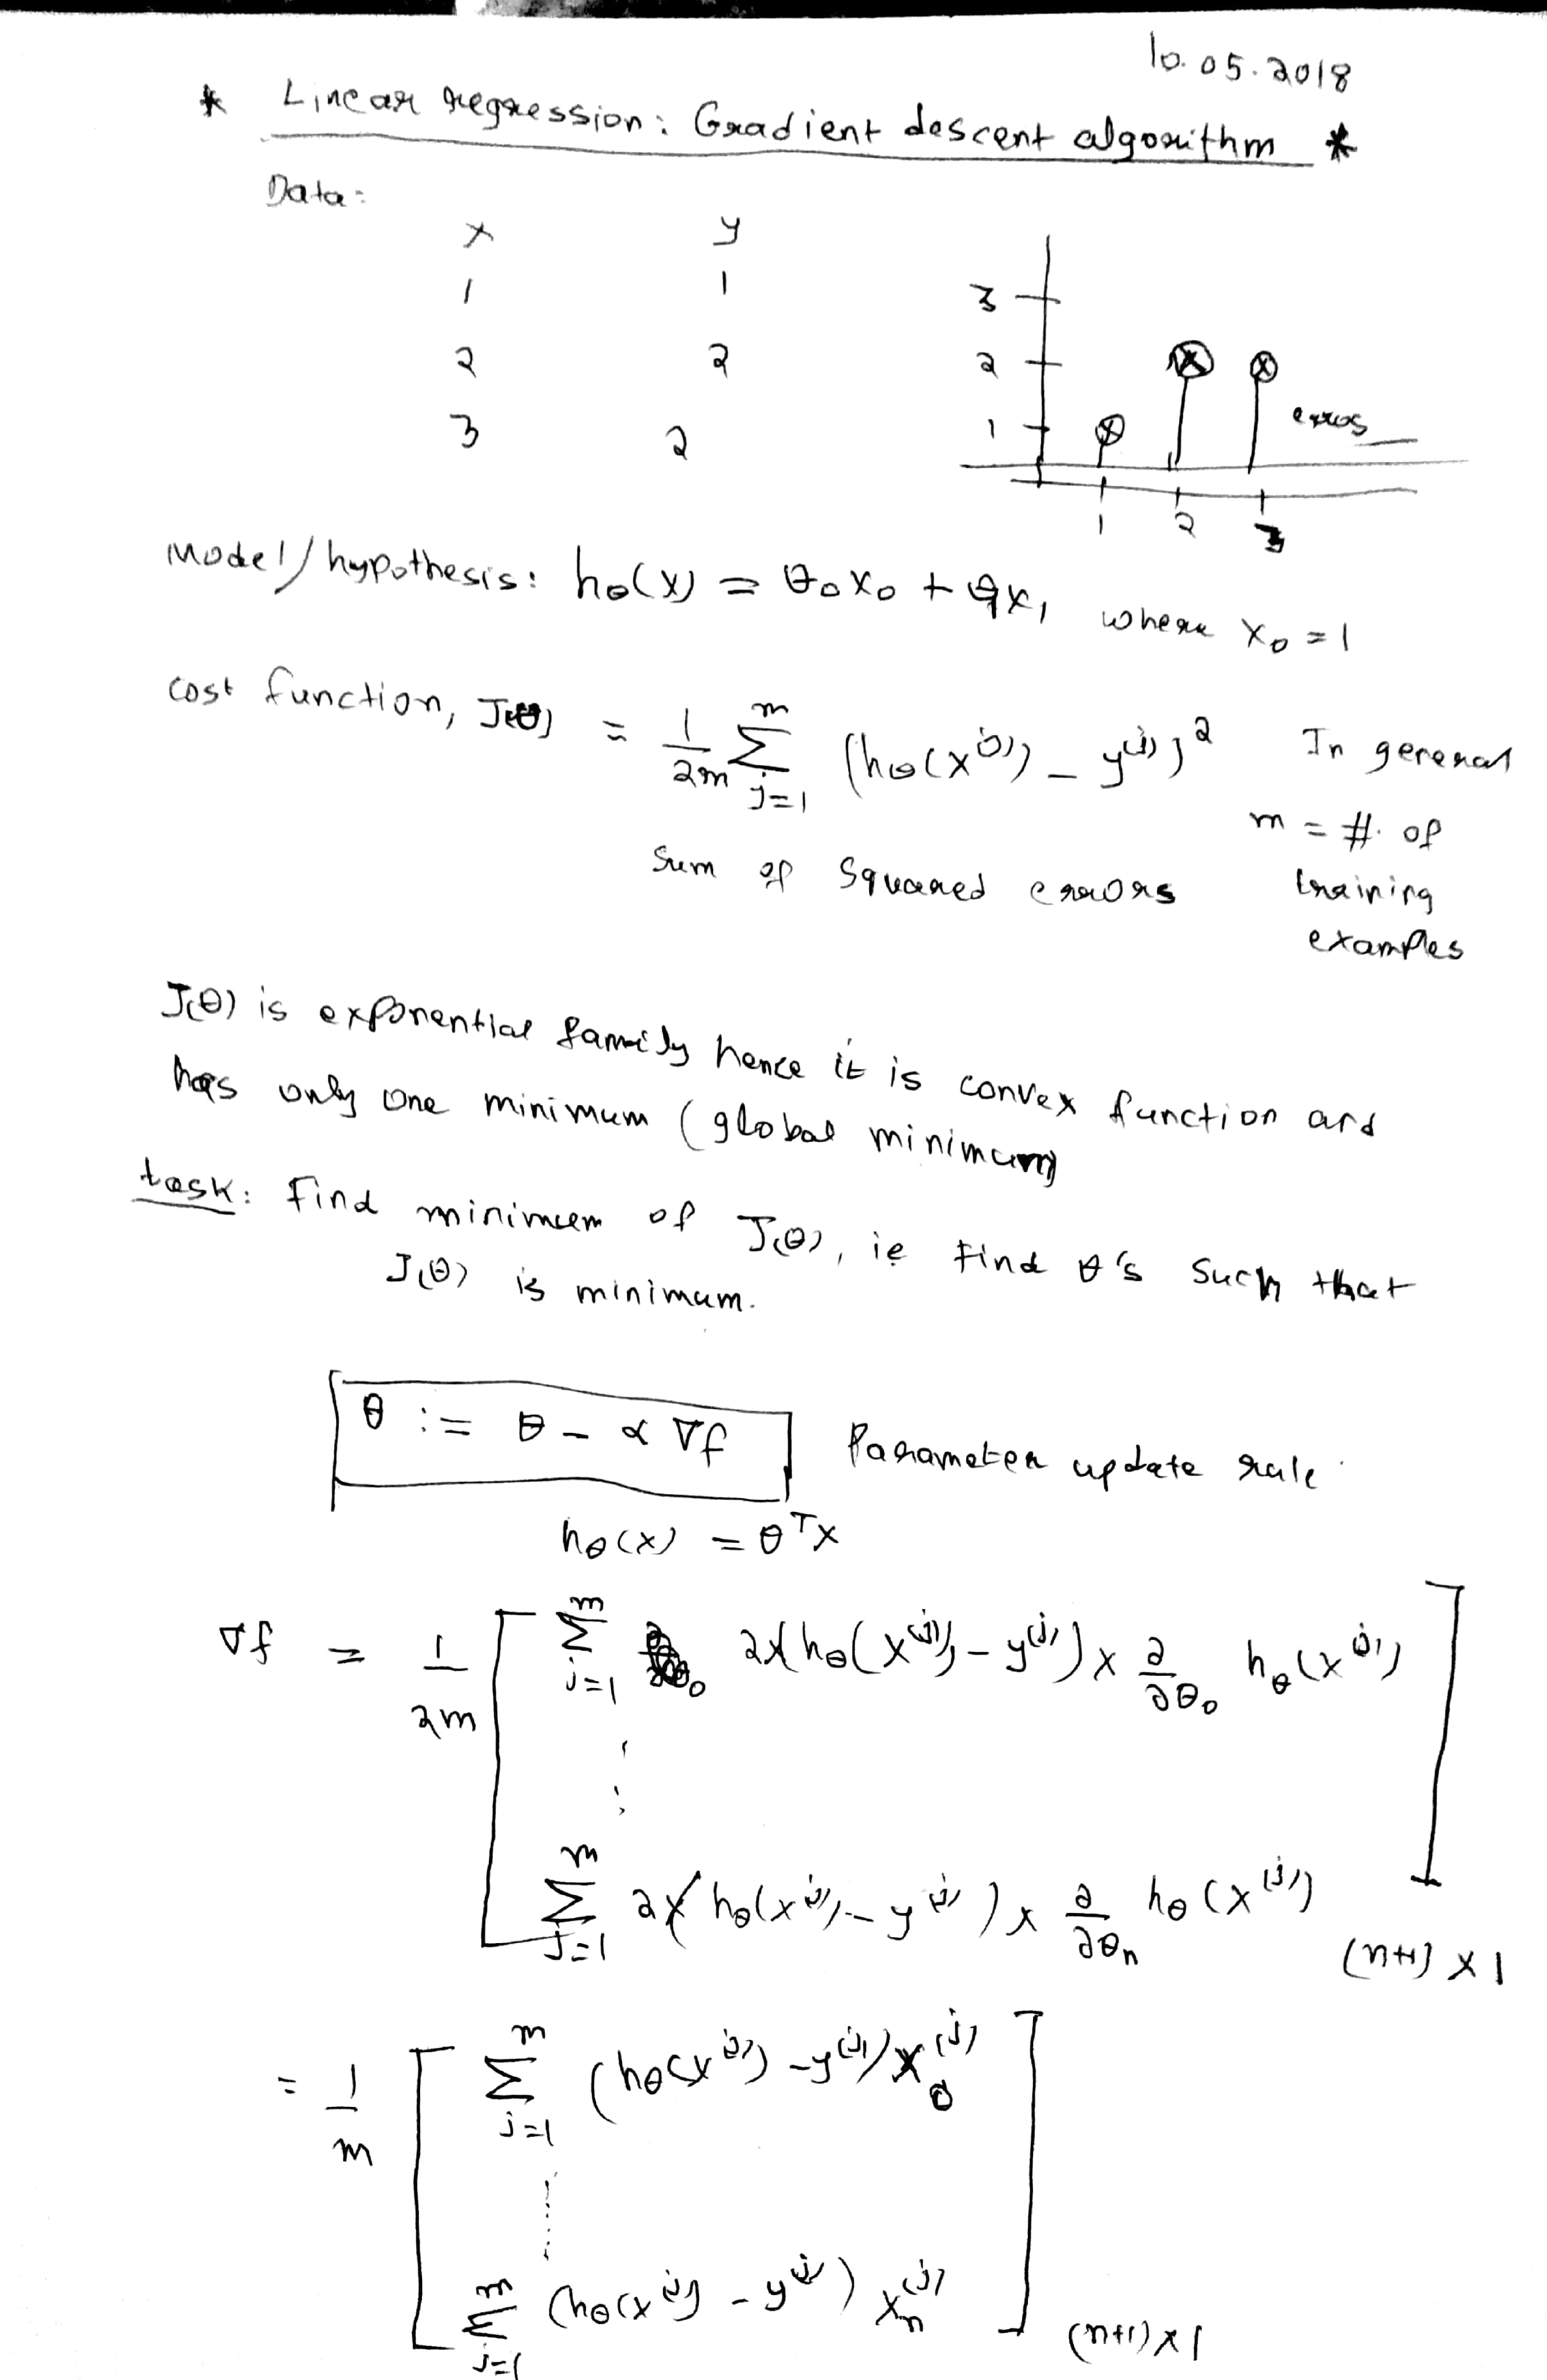 10.05.2018
* Linear regression: Gradient descent algorithm *
Data:
x y
1 1
2 2
3 2
3
2
1
errors
1 2 3
Model/hypothesis: hθ(x) = θ₀x₀ + θ₁x₁ where x₀ = 1
cost function, J(θ) = 1/2m Σ_{j=1}^{m} (hθ(x^(j)) - y^(j))² In general
m = #. of
Sum of Squared errors training
examples
J(θ) is exponential family hence it is convex function and
has only one minimum (global minimum)
task: Find minimum of J(θ), ie find θ's such that
J(θ) is minimum.
θ := θ - α ∇f Parameter update rule.
hθ(x) = θᵀx
∇f = 1/2m [ Σ_{j=1}^{m} 2×(hθ(x^(j)) - y^(j)) × ∂/∂θ₀ hθ(x^(j))
⋮
Σ_{j=1}^{m} 2×(hθ(x^(j)) - y^(j)) × ∂/∂θₙ hθ(x^(j)) ] (n+1) × 1
= 1/m [ Σ_{j=1}^{m} (hθ(x^(j)) - y^(j)) x₀^(j)
⋮
Σ_{j=1}^{m} (hθ(x^(j)) - y^(j)) xₙ^(j) ] (n+1) × 1